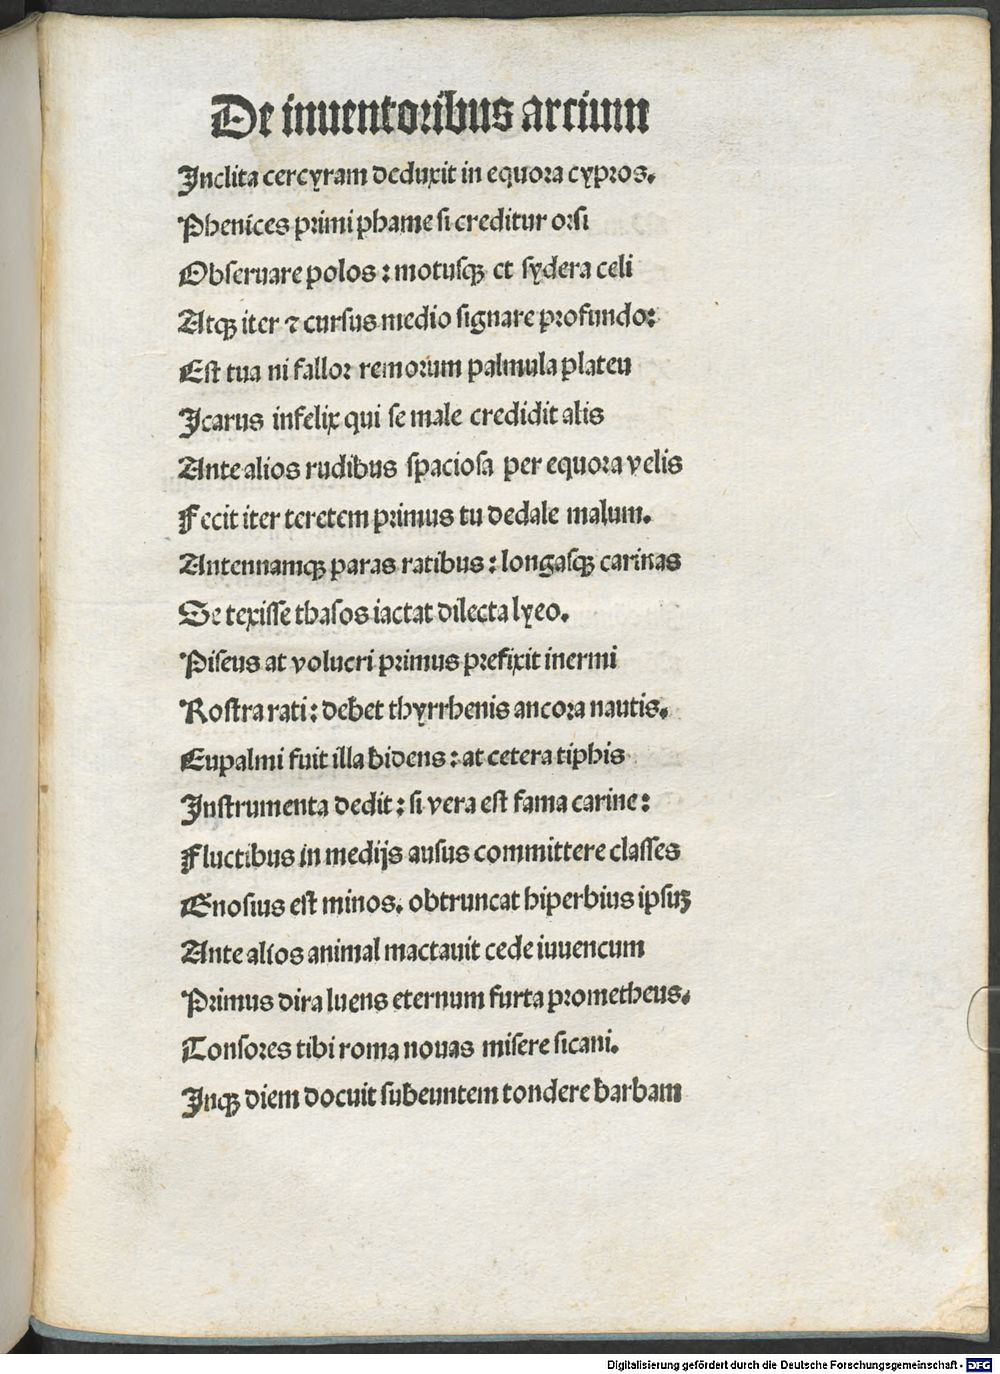 De inuentoribus arcium
Inclita cercyram deduxit in equora cypros.
Phenices primi phame si creditur orsi
Obseruare polos : motusqꝫ et sydera celi
Atqꝫ iter ⁊ cursus medio signare profundo:
Est tua ni fallor remorum palmula plateu
Icarus infelix qui se male credidit alis
Ante alios rudibus spaciosa per equora velis
Fecit iter teretem primus tu dedale malum.
Antennamqꝫ paras ratibus : longasqꝫ carinas
Se texisse thasos iactat dilecta lyeo.
Piseus at volucri primus prefixit inermi
Rostra rati : debet thyrrhenis ancora nautis.
Eupalmi fuit illa bidens : at cetera tiphis
Instrumenta dedit : si vera est fama carine :
Fluctibus in medijs ausus committere classes
Gnosius est minos. obtruncat hiperbius ipsuꝫ
Ante alios animal mactauit cede iuuencum
Primus dira luens eternum furta prometheus.
Tonsores tibi roma nouas misere sicani.
Inqꝫ diem docuit subeuntem tondere barbam
Digitalisierung gefördert durch die Deutsche Forschungsgemeinschaft - DFG